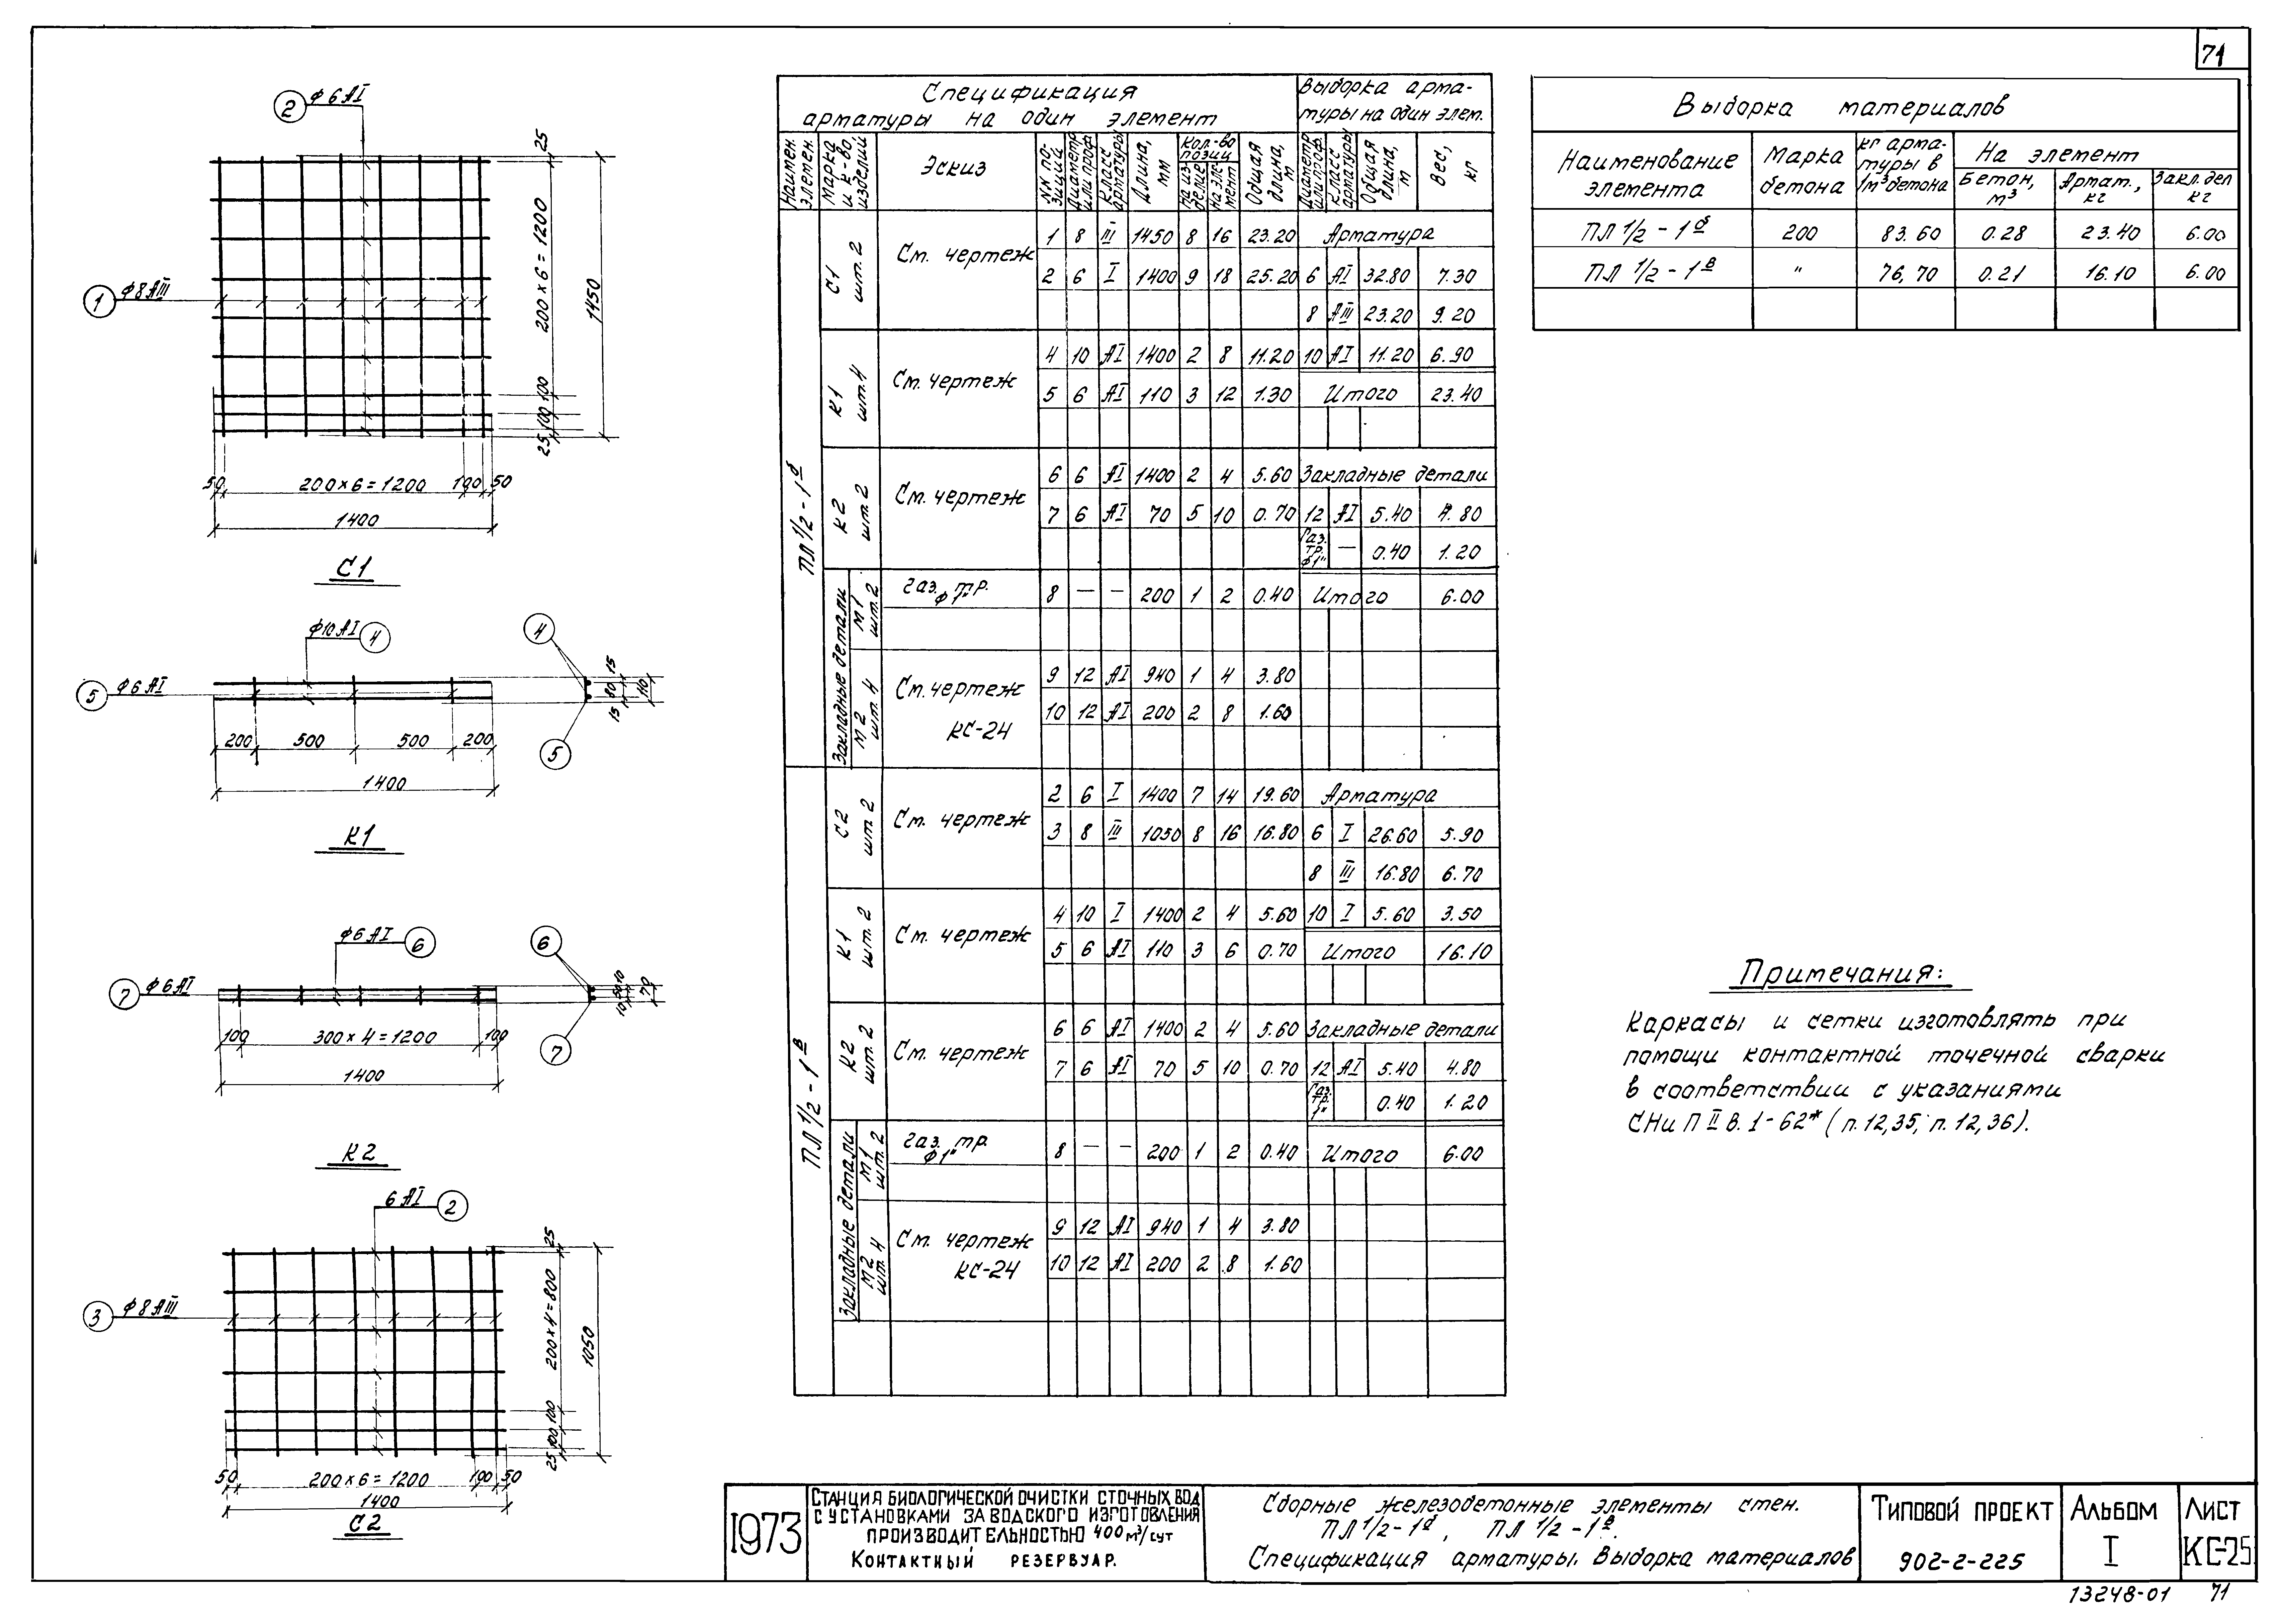 71
2 ф6АI
25
200×6=1200
1450
1 ф8АIII
100
100
25
50 200×6=1200 100 50
1400
С1
ф10АI 4
4
5 ф6АI
15
80
15
110
200 500 500 200
5
1400
К1
ф6АI 6
6
7 ф6АI
10
50
10
70
100 300×4=1200 100
7
1400
К2
6АI 2
25
3 ф8АIII
200×4=800
1050
100
100
25
50 200×6=1200 100 50
1400
С2
Спецификация арматуры на один элемент
Выборка арматуры на один элем.
Наимен. элемен.
Марка и к-во, изделий
Эскиз
NN позиций
Диаметр или проф.
Класс арматуры
Длина, мм
Кол-во позиц
на изделие
на элемент
Общая длина, м
Диаметр или проф.
Класс арматуры
Общая длина, м
Вес, кг
ПЛ 1/2-1б
С1 шт. 2
См. чертеж
1 8 III 1450 8 16 23.20 Арматура
2 6 I 1400 9 18 25.20 6 АI 32.80 7.30
8 АIII 23.20 9.20
К1 шт.4
См. чертеж
4 10 АI 1400 2 8 11.20 10 АI 11.20 6.90
5 6 АI 110 3 12 1.30 Итого 23.40
К2 шт. 2
См. чертеж
6 6 АI 1400 2 4 5.60 Закладные детали
7 6 АI 70 5 10 0.70 12 АI 5.40 4.80
Газ. тр. ф1" — 0.40 1.20
Закладные детали
М1 шт.2
газ. тр. ф1"
8 — — 200 1 2 0.40 Итого 6.00
М2 шт. 4
См. чертеж КС-24
9 12 АI 940 1 4 3.80
10 12 АI 200 2 8 1.60
ПЛ 1/2-1в
С2 шт 2
См. чертеж
2 6 I 1400 7 14 19.60 Арматура
3 8 III 1050 8 16 16.80 6 I 26.60 5.90
8 III 16.80 6.70
К1 шт. 2
См. чертеж
4 10 I 1400 2 4 5.60 10 I 5.60 3.50
5 6 АI 110 3 6 0.70 Итого 16.10
К2 шт. 2
См. чертеж
6 6 АI 1400 2 4 5.60 Закладные детали
7 6 АI 70 5 10 0.70 12 АI 5.40 4.80
Газ. тр. 1" 0.40 1.20
Закладные детали
М1 шт. 2
газ. тр. ф1"
8 — — 200 1 2 0.40 Итого 6.00
М2 шт. 4
См. чертеж КС-24
9 12 АI 940 1 4 3.80
10 12 АI 200 2 8 1.60
Выборка материалов
Наименование элемента
Марка бетона
кг арматуры в 1м³ бетона
На элемент
Бетон, м³
Армат., кг
Закл. дел кг
ПЛ 1/2-1б 200 83.60 0.28 23.40 6.00
ПЛ 1/2-1в " 76,70 0.21 16.10 6.00
Примечания:
Каркасы и сетки изготовлять при
помощи контактной точечной сварки
в соответствии с указаниями
СНиП II В. 1-62* (п.12,35; п.12,36).
1973
Станция биологической очистки сточных вод
с установками заводского изготовления
производительностью 400 м³/сут
Контактный резервуар.
Сборные железобетонные элементы стен.
ПЛ 1/2-1б, ПЛ 1/2-1в.
Спецификация арматуры. Выборка материалов
Типовой проект
902-2-225
Альбом
I
Лист
КС-25
13248-01 71